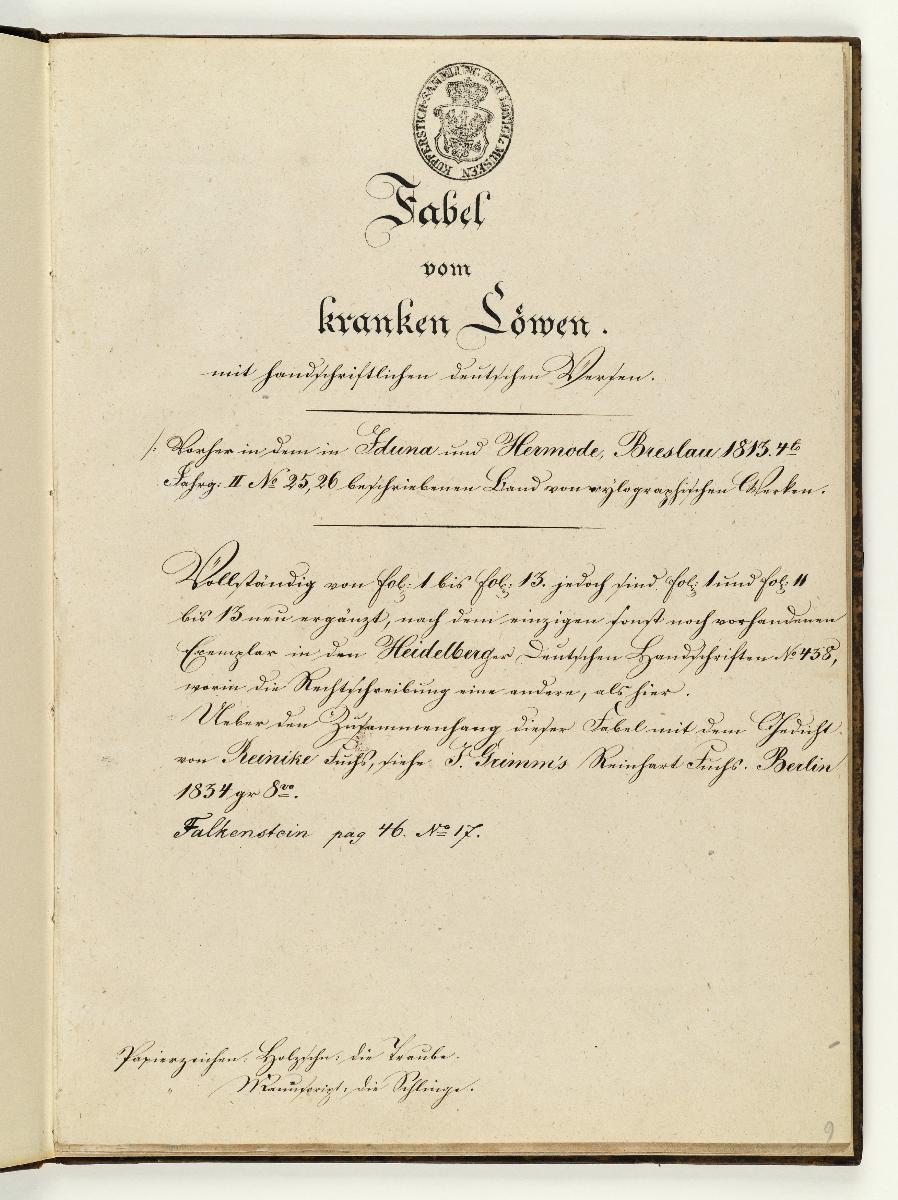 KUPFERSTICH-SAMMLUNG DER KÖNIGL. MUSEEN
Fabel
vom
kranken Löwen.
mit handschriftlichen deutschen Versen.
/: Vorher in dem in Iduna und Hermode, Breslau 1813. 4to
Jahrg: II No 25, 26 beschriebenen Band von xylographischen Werken.
Vollständig von fol: 1 bis fol: 13. jedoch sind fol: 1 und fol: 11
bis 13 neu ergänzt, nach dem einzigen sonst noch vorhandenen
Exemplar in den Heidelberger Deutschen Handschriften No 438,
worin die Rechtschreibung eine andere, als hier.
Ueber den Zusammenhang dieser Fabel mit dem Gedicht
von Reinike Fuchs, siehe J. Grimm's Reinhart Fuchs. Berlin
1834 gr 8vo.
Falkenstein pag 46. No 17.
Papierzeichen: Holzschn: die Traube.
" Manuscript: die Schlinge.
9